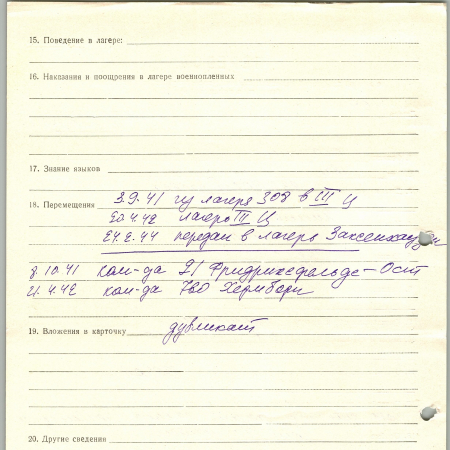 15. Поведение в лагере:
16. Наказания и поощрения в лагере военнопленных
17. Знание языков
18. Перемещения 3.9.41 из лагеря 308 в III Ц
20.4.42 лагерь III Ц
24.2.44 передан в лагерь Заксенхаузен
8.10.41 ком-да 21 Фридрихсфельде-Ост
21.4.42 ком-да 780
19. Вложения в карточку дубликат
20. Другие сведения